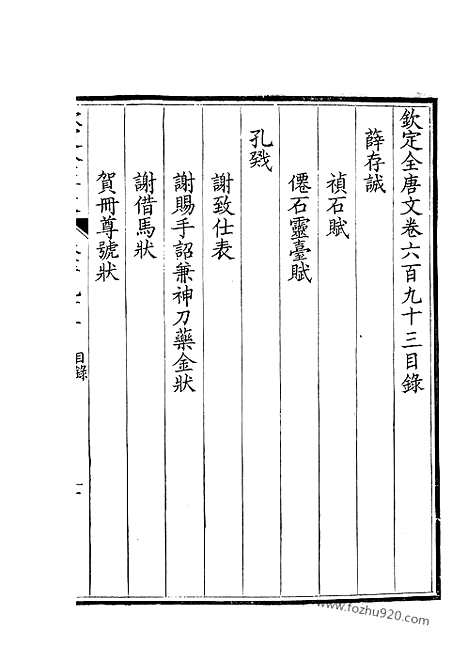 欽定全唐文卷六百九十三目錄
薛存誠
禎石賦
僊石靈臺賦
孔戣
謝致仕表
謝賜手詔兼神刀藥金狀
謝借馬狀
賀冊尊號狀
目錄
www.fozhu920.com